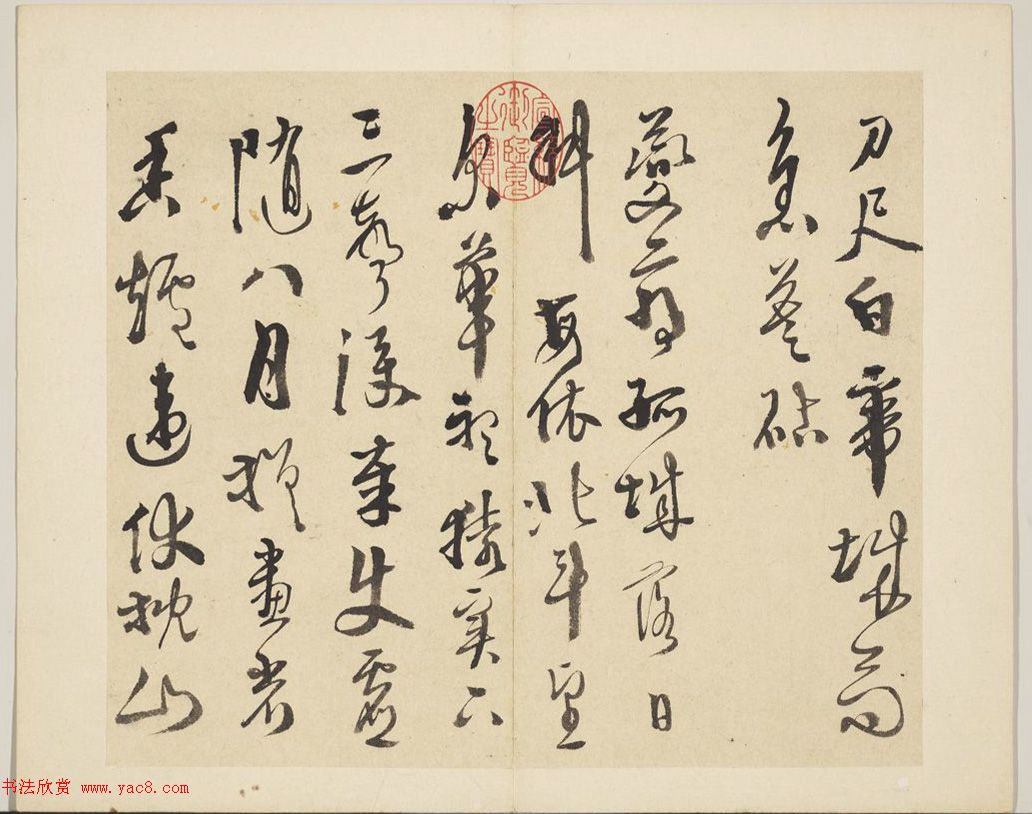 刀尺白帝城高
急暮砧
夔府孤城落日
斜每依北斗望
京華聽猿實下
三聲淚奉使虛
随八月槎畫省
香爐違伏枕山
宣統御覽之寶
书法欣赏 www.yac8.com